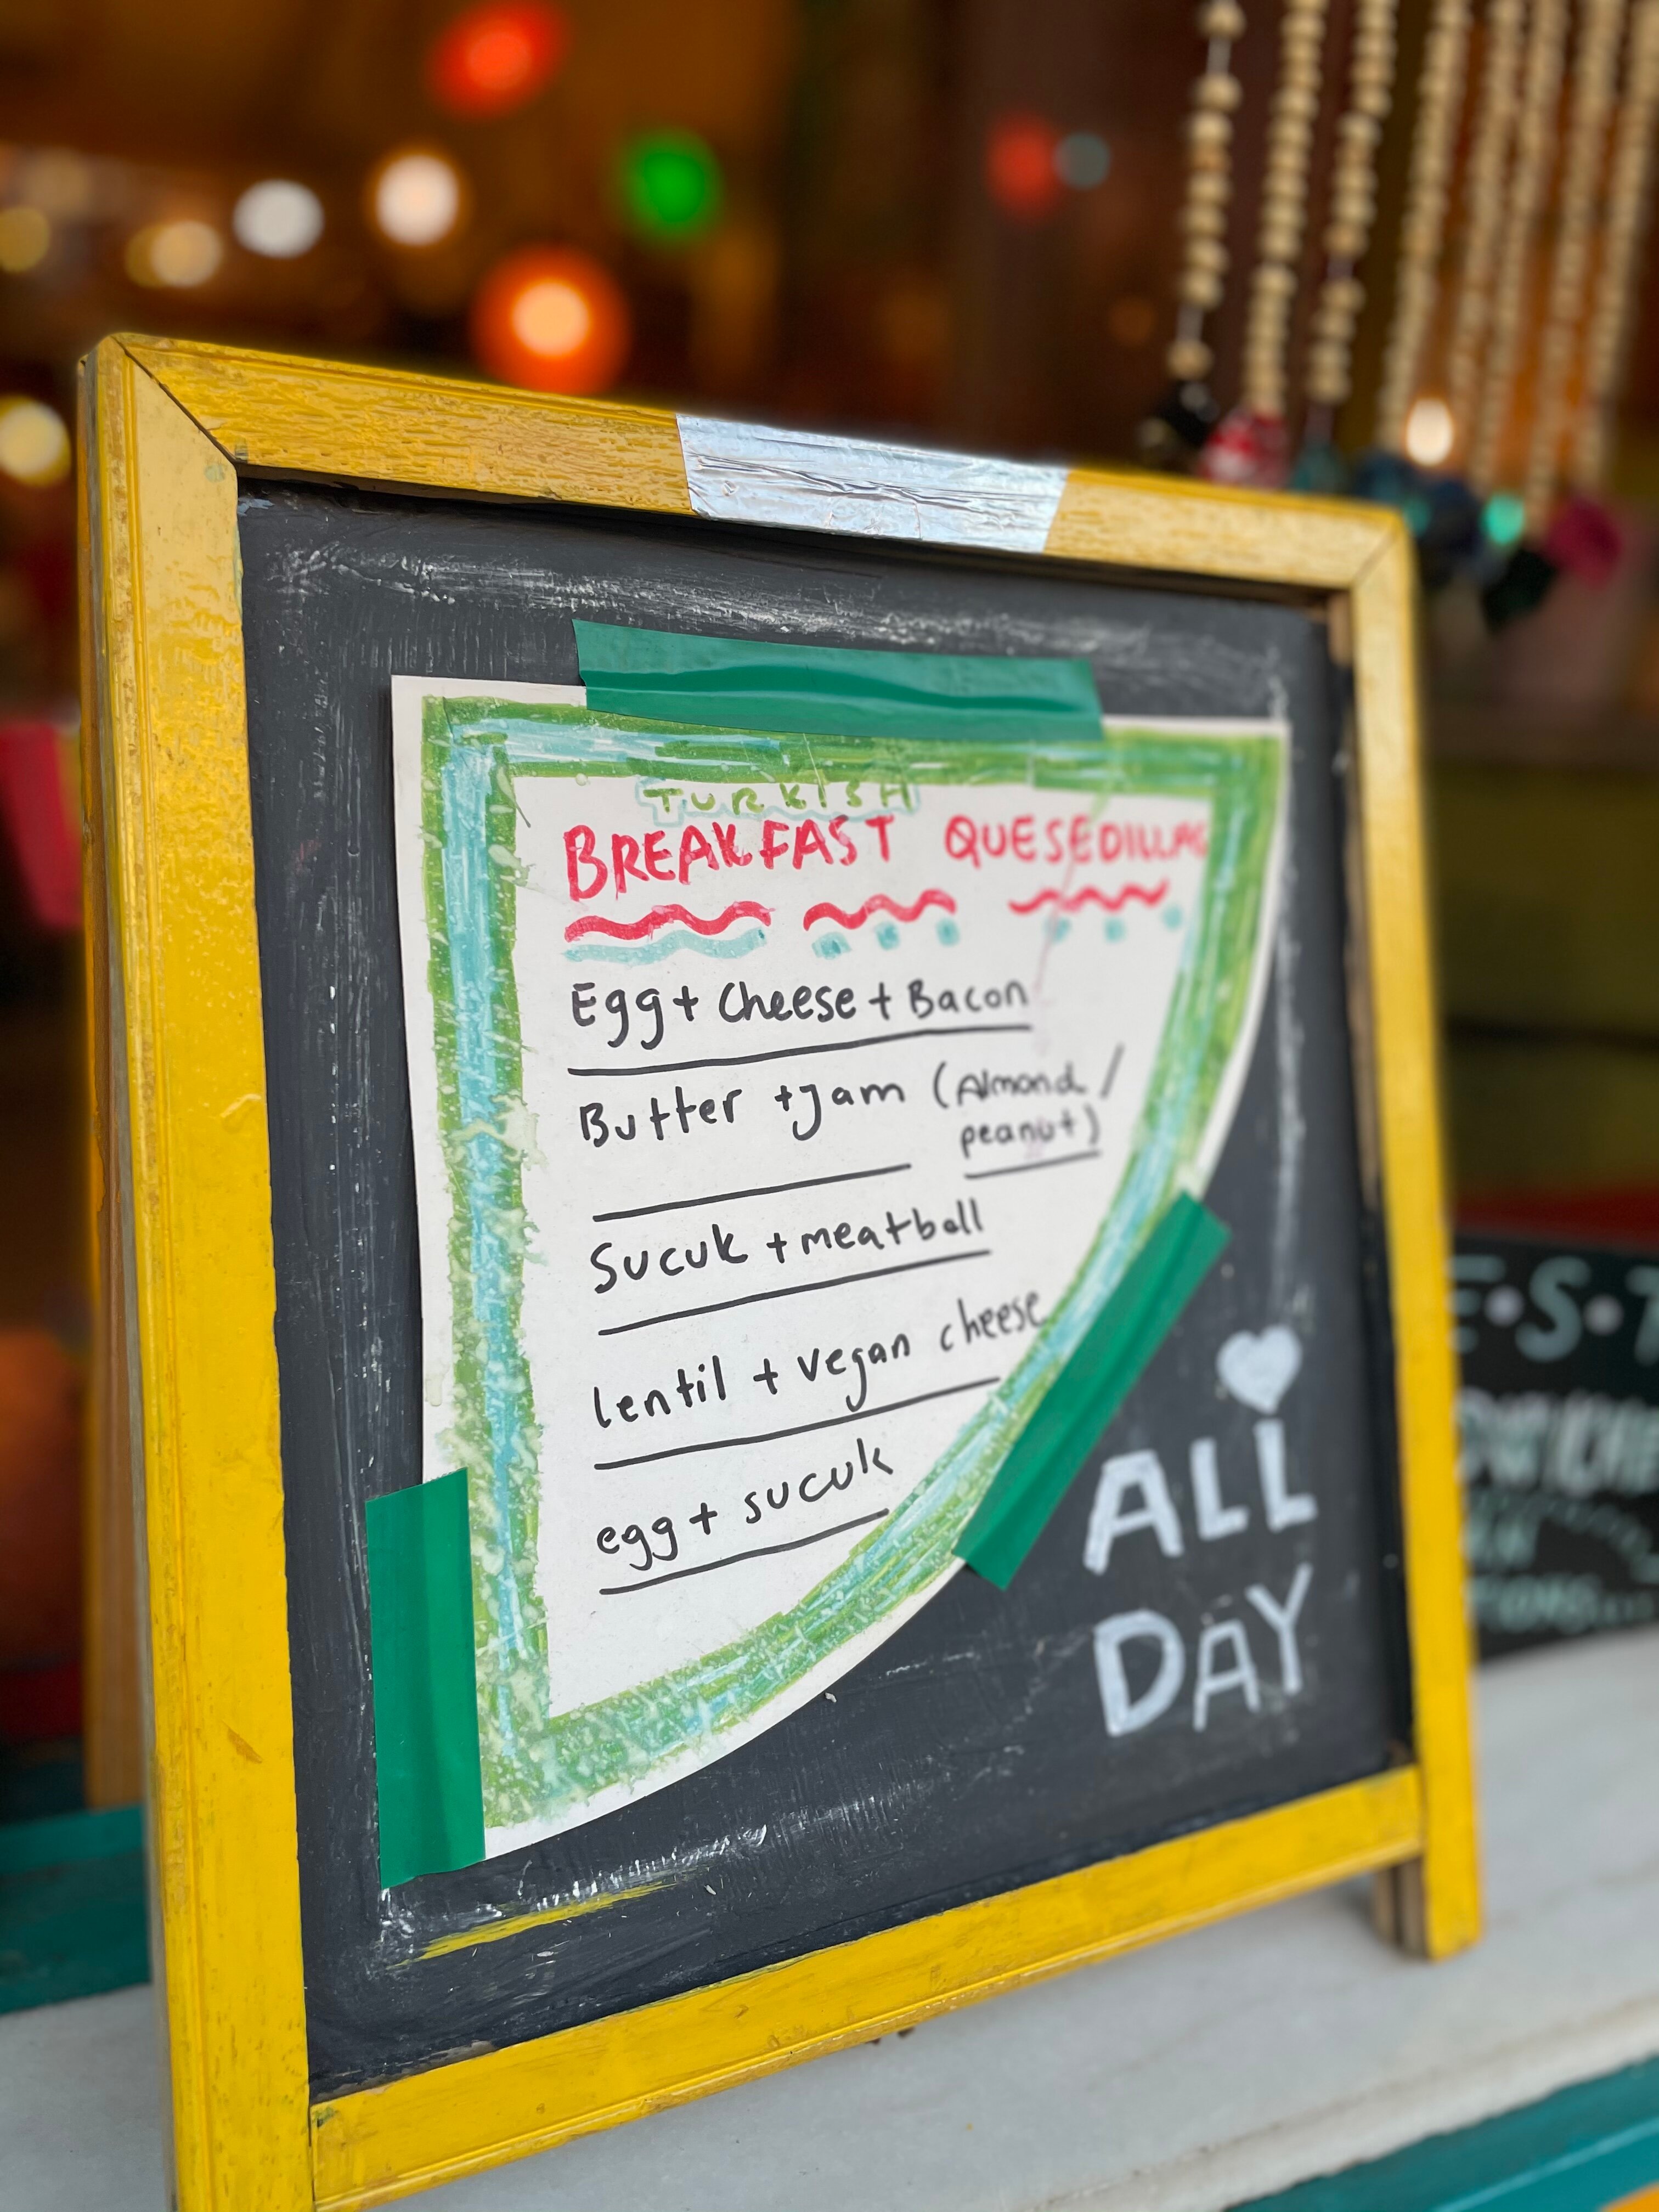 TURKISH
BREAKFAST QUESEDILLAS
Egg + Cheese + Bacon
Butter + Jam (Almond /
peanut)
Sucuk + meatball
lentil + vegan cheese
egg + sucuk
ALL
DAY
E•S•T